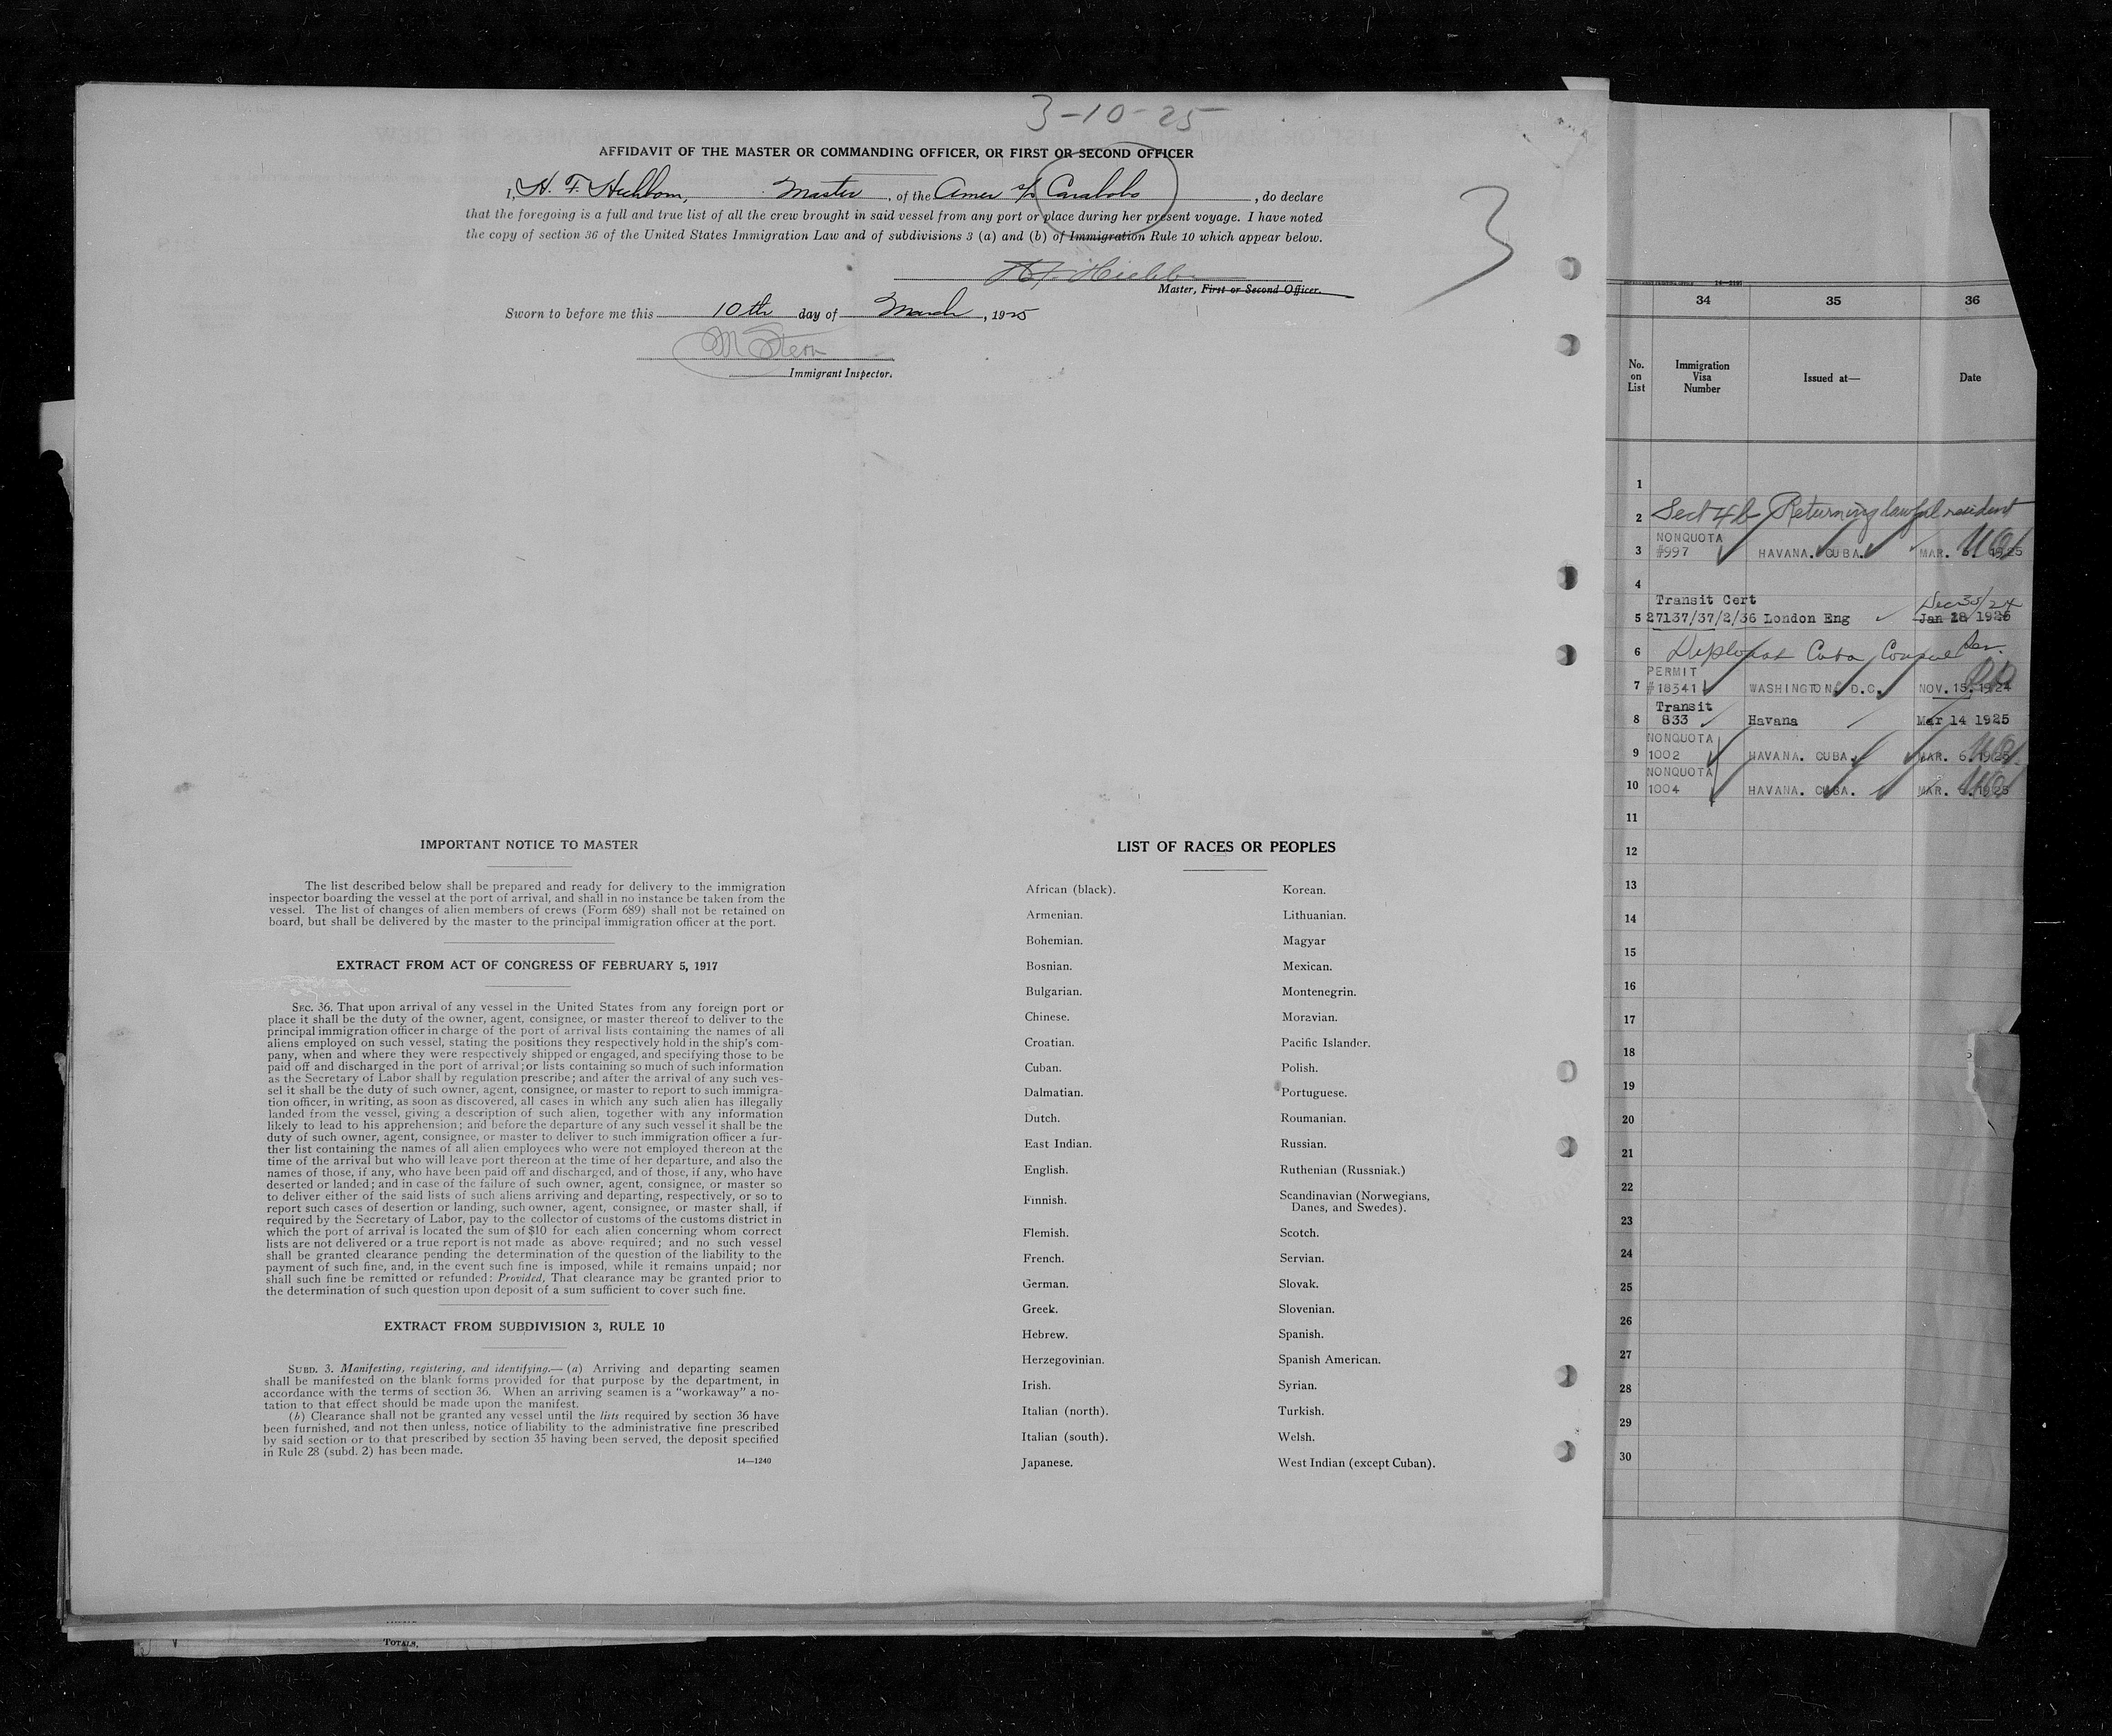 3-10-25
AFFIDAVIT OF THE MASTER OR COMMANDING OFFICER, OR FIRST OR SECOND OFFICER
I, H. F. Hichborn, Master, of the Amer s/s Carabobo, do declare
that the foregoing is a full and true list of all the crew brought in said vessel from any port or place during her present voyage. I have noted
the copy of section 36 of the United States Immigration Law and of subdivisions 3 (a) and (b) of Immigration Rule 10 which appear below.
3
Master, First or Second Officer.
Sworn to before me this 10th day of March, 1925
M Stern
Immigrant Inspector.
IMPORTANT NOTICE TO MASTER
The list described below shall be prepared and ready for delivery to the immigration
inspector boarding the vessel at the port of arrival, and shall in no instance be taken from the
vessel. The list of changes of alien members of crews (Form 689) shall not be retained on
board, but shall be delivered by the master to the principal immigration officer at the port.
EXTRACT FROM ACT OF CONGRESS OF FEBRUARY 5, 1917
SEC. 36. That upon arrival of any vessel in the United States from any foreign port or
place it shall be the duty of the owner, agent, consignee, or master thereof to deliver to the
principal immigration officer in charge of the port of arrival lists containing the names of all
aliens employed on such vessel, stating the positions they respectively hold in the ship's com-
pany, when and where they were respectively shipped or engaged, and specifying those to be
paid off and discharged in the port of arrival; or lists containing so much of such information
as the Secretary of Labor shall by regulation prescribe; and after the arrival of any such ves-
sel it shall be the duty of such owner, agent, consignee, or master to report to such immigra-
tion officer, in writing, as soon as discovered, all cases in which any such alien has illegally
landed from the vessel, giving a description of such alien, together with any information
likely to lead to his apprehension; and before the departure of any such vessel it shall be the
duty of such owner, agent, consignee, or master to deliver to such immigration officer a fur-
ther list containing the names of all alien employees who were not employed thereon at the
time of the arrival but who will leave port thereon at the time of her departure, and also the
names of those, if any, who have been paid off and discharged, and of those, if any, who have
deserted or landed; and in case of the failure of such owner, agent, consignee, or master so
to deliver either of the said lists of such aliens arriving and departing, respectively, or so to
report such cases of desertion or landing, such owner, agent, consignee, or master shall, if
required by the Secretary of Labor, pay to the collector of customs of the customs district in
which the port of arrival is located the sum of $10 for each alien concerning whom correct
lists are not delivered or a true report is not made as above required; and no such vessel
shall be granted clearance pending the determination of the question of the liability to the
payment of such fine, and, in the event such fine is imposed, while it remains unpaid; nor
shall such fine be remitted or refunded: Provided, That clearance may be granted prior to
the determination of such question upon deposit of a sum sufficient to cover such fine.
EXTRACT FROM SUBDIVISION 3, RULE 10
SUBD. 3. Manifesting, registering, and identifying.—(a) Arriving and departing seamen
shall be manifested on the blank forms provided for that purpose by the department, in
accordance with the terms of section 36. When an arriving seamen is a "workaway" a no-
tation to that effect should be made upon the manifest.
(b) Clearance shall not be granted any vessel until the lists required by section 36 have
been furnished, and not then unless, notice of liability to the administrative fine prescribed
by said section or to that prescribed by section 35 having been served, the deposit specified
in Rule 28 (subd. 2) has been made.
14—1240
LIST OF RACES OR PEOPLES
African (black).
Armenian.
Bohemian.
Bosnian.
Bulgarian.
Chinese.
Croatian.
Cuban.
Dalmatian.
Dutch.
East Indian.
English.
Finnish.
Flemish.
French.
German.
Greek.
Hebrew.
Herzegovinian.
Irish.
Italian (north).
Italian (south).
Japanese.
Korean.
Lithuanian.
Magyar
Mexican.
Montenegrin.
Moravian.
Pacific Islander.
Polish.
Portuguese.
Roumanian.
Russian.
Ruthenian (Russniak.)
Scandinavian (Norwegians,
Danes, and Swedes).
Scotch.
Servian.
Slovak.
Slovenian.
Spanish.
Spanish American.
Syrian.
Turkish.
Welsh.
West Indian (except Cuban).
TOTALS,
34 35 36
No. on List
Immigration Visa Number
Issued at—
Date
1
2 Sect 4b Returning lawful resident
NONQUOTA
3 #997 HAVANA. CUBA. MAR. 1925
4
Transit Cert Dec 30/24
5 27137/37/2/36 London Eng Jan 28 1925
6 Diplomat Cuba Consul
PERMIT
7 #18341 WASHINGTON, D.C. NOV. 15. 1924
Transit
8 833 Havana Mar 14 1925
NONQUOTA
9 1002 HAVANA. CUBA. MAR. 6. 1925
NONQUOTA
10 1004 HAVANA. CUBA. MAR. 1925
11
12
13
14
15
16
17
18
19
20
21
22
23
24
25
26
27
28
29
30